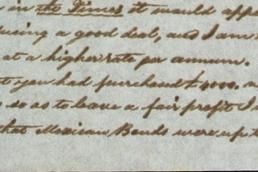 in the Times it would appe
using a good deal, and I am
at a higher rate per annum.
t you had purchased £4000, a
so as to leave a fair profit I
that Mexican Bonds were up t